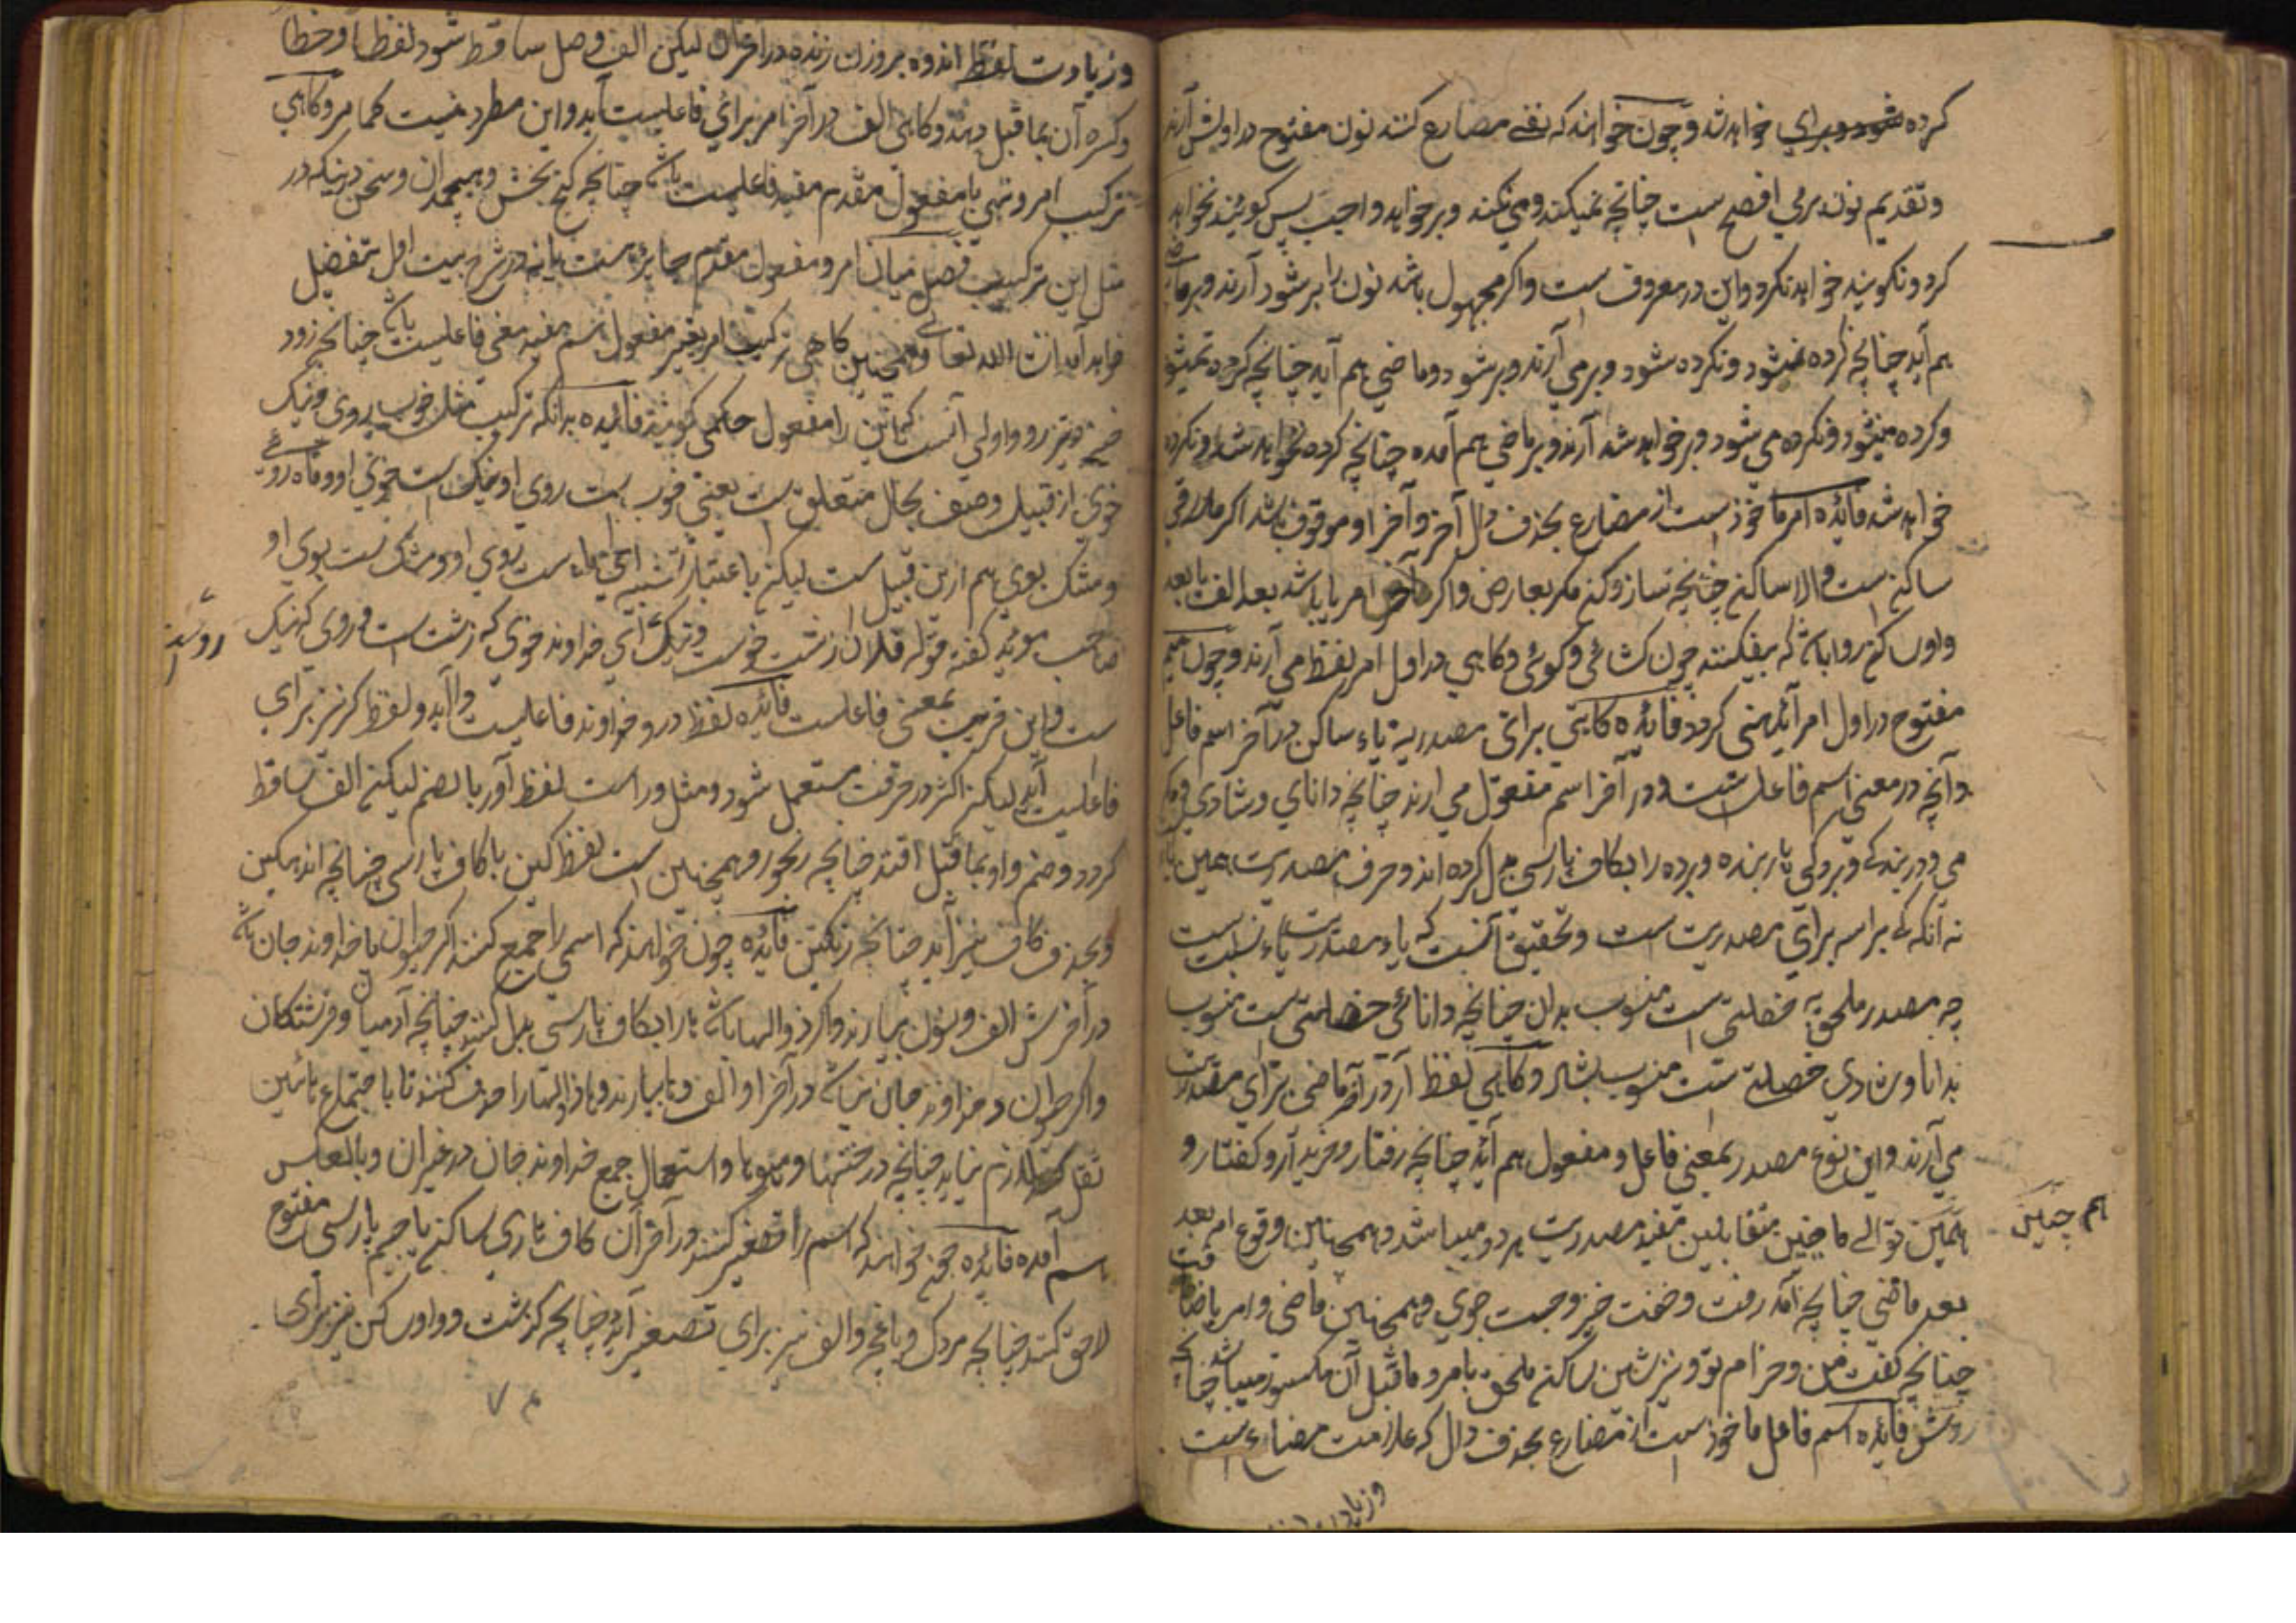 کرده خواهد شد و چون خواهند که نفی مضارع کنند نون مفتوح در اولش آرند
و تقدیم نون برمی افصح است چنانچه نمیکند و می نکند و بر خواهد واجب پس گویند نخواهد
کرد و نگویند خواهد نکرد و این در معروف است و اگر مجهول باشد نون را بر شود آرند و بر ماضی
هم آید چنانچه کرده نشود و نکرده شود و بر می آرند و بر شود و ماضی هم آید چنانچه کرده نمیشود
و کرده می نشود و نکرده می شود و بر خواهد شد آرند و بر ماضی هم آمده چنانچه کرده نخواهد شد و نکرده
خواهد شد فائده امر ماخوذ است از مضارع بحذف دال آخر و آخر او موقوف باشد اگر ملاقی
ساکن است و الا ساکن چنانچه ساز و کن مگر بعارض و اگر آخر امر یا باشد بعد الف یا بعد
واو ساکن روا باشد که بیفکنند چون گشائی و گوئی و گاهی در اول امر لفظ می آرند و چون میم
مفتوح در اول امر آید نهی گردد فائده گاهی برای مصدریة یاء ساکن در آخر اسم فاعل
و آنچه در معنی اسم فاعل است و در آخر اسم مفعول می آرند چنانچه دانای و شادی
می و در بندگی و بردگی یار بنده و برده را بکاف پارسی بدل کرده اند و حرف مصدریت همین
نه آنکه گی براسه برای مصدریت است و تحقیق آنست که یاء مصدریت یاء نسبت است
چه مصدر ملحق به خصلتی است منسوب بدان چنانچه دانائی خصلتی ست منسوب
بدانا و شادی خصلتی ست منسوب بشاد و گاهی لفظ آر در آخر ماضی برای مصدریت
می آرند و این نوع مصدر بمعنی فاعل و مفعول هم آید چنانچه رفتار و خریدار و گفتار و
هم چنین توالی ماضیین متقابلین مفید مصدریت هر دو میباشد و همچنین وقوع امر بعد
هم چنین
بعد ماضی چنانچه آمد رفت و خفت خیز و جست جوی و همچنین ماضی و امر باضافت
چنانچه گفت من و خرام تو و نیز شین ساکن ملحق بامر و ماقبل آن مکسور میباشد چنانچه
روش فائده اسم فاعل ماخوذ است از مضارع بحذف دال که علامت مضارع است
و زیادت
و زیادت لفظ انده بر وزن زنده در آخر آن لیکن الف وصل ساقط شود لفظا و خطا
و کسره آن بماقبل دهند و گاهی الف در آخر امر برای فاعلیت آید و این مطرد نیست کما مر و گاهی
ترکیب امر و نهی با مفعول مقدم مفید فاعلیت باشد چنانچه گنج بخش و هیچمدان و سخن
مثل این ترکیب فصل میان امر و مفعول مقدم جایز است یا نه در شرح بیت اول بتفضیل
خواهد آمد انشاء الله تعالی و همچنین گاهی ترکیب امر بغیر مفعول اسم مفید معنی فاعلیت باشد چنانچه زود
خیز و تیز رو و اولی آنست که این را مفعول حکمی گویند فائده بدانکه ترکیب مثل خوب روی و نیک
خوی از قبیل وصف بحال متعلق ست یعنی خوب ست روی او و نیک است خوی او و ماه روی
و مشک بوی هم ازین قبیل ست لیکن باعتبار تشبیه ای ماه است روی او و مشک ست بوی او
صاحب موید گفته قوله فلان زشت خوست و نیک ای خداوند خوی که زشت است و روی که نیک
روست
ست و این قریب بمعنی فاعلست فائده لفظ در و خداوند فاعلیت را آید و لفظ گر نیز برای
فاعلیت آید لیکن اکثر در حرفت مستعمل شود و مثل وراست لفظ آور بالضم لیکن الف ساقط
گردد و ضم واو بماقبل افتد چنانچه رنجور و همچنین است لفظ گین با کاف پارسی چنانچه اندهگین
و بحذف کاف نیز آید چنانچه رنگین فائده چون خواهند که اسمی را جمع کنند اگر حیوان یا خداوند جان باشد
در آخرش الف و نون بیارند و اگر ذو الها باشد ها را بکاف پارسی بدل کنند چنانچه آدمیان و فرشتگان
و اگر حیوان و خداوند جان نباشد در آخر او الف و ها بیارند و ها ذو الها را حذف کنند تا با جتماع هائین
ثقل لازم نیاید چنانچه درختها و میوها و استعمال جمع خداوند جان در غیر آن و بالعکس
هم آمده فائده چون خواهند که اسم را تصغیر کنند در آخر آن کاف تازی ساکن یا جیم پارسی مفتوح
لاحق کنند چنانچه مردک و باغچه و الف نیز برای تصغیر آید چنانچه گذشت و واو ساکن نیز برای